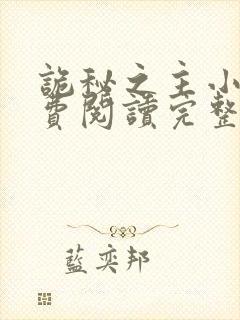 詭秘之主小
費閱讀完整
藍奕邦